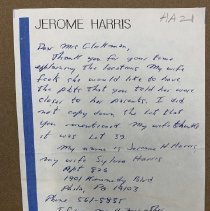 JEROME HARRIS
AA21
Dear Mrs Glattman,
Thank you for your time
explaining the locations. My wife
feels she would like to have
the plots that you told her were
closer to her parents. I did
not copy down the lot that
you mentioned. My wife thinks
it was Lot 39
My name is Jerome H Harris,
my wife Sylvia Harris
Apt 826
1901 Kennedy Blvd
Phila, Pa 19103
Phone 561-5835